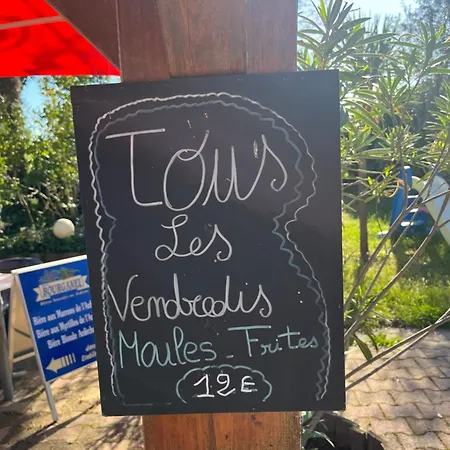 Tous
Les
Vendredis
Moules - Frites
12€
BOURGANEL
Bière aux Marrons de l'Ardèche
Bière aux Myrtilles de l'Ardèche
Bière Blonde Ardèche